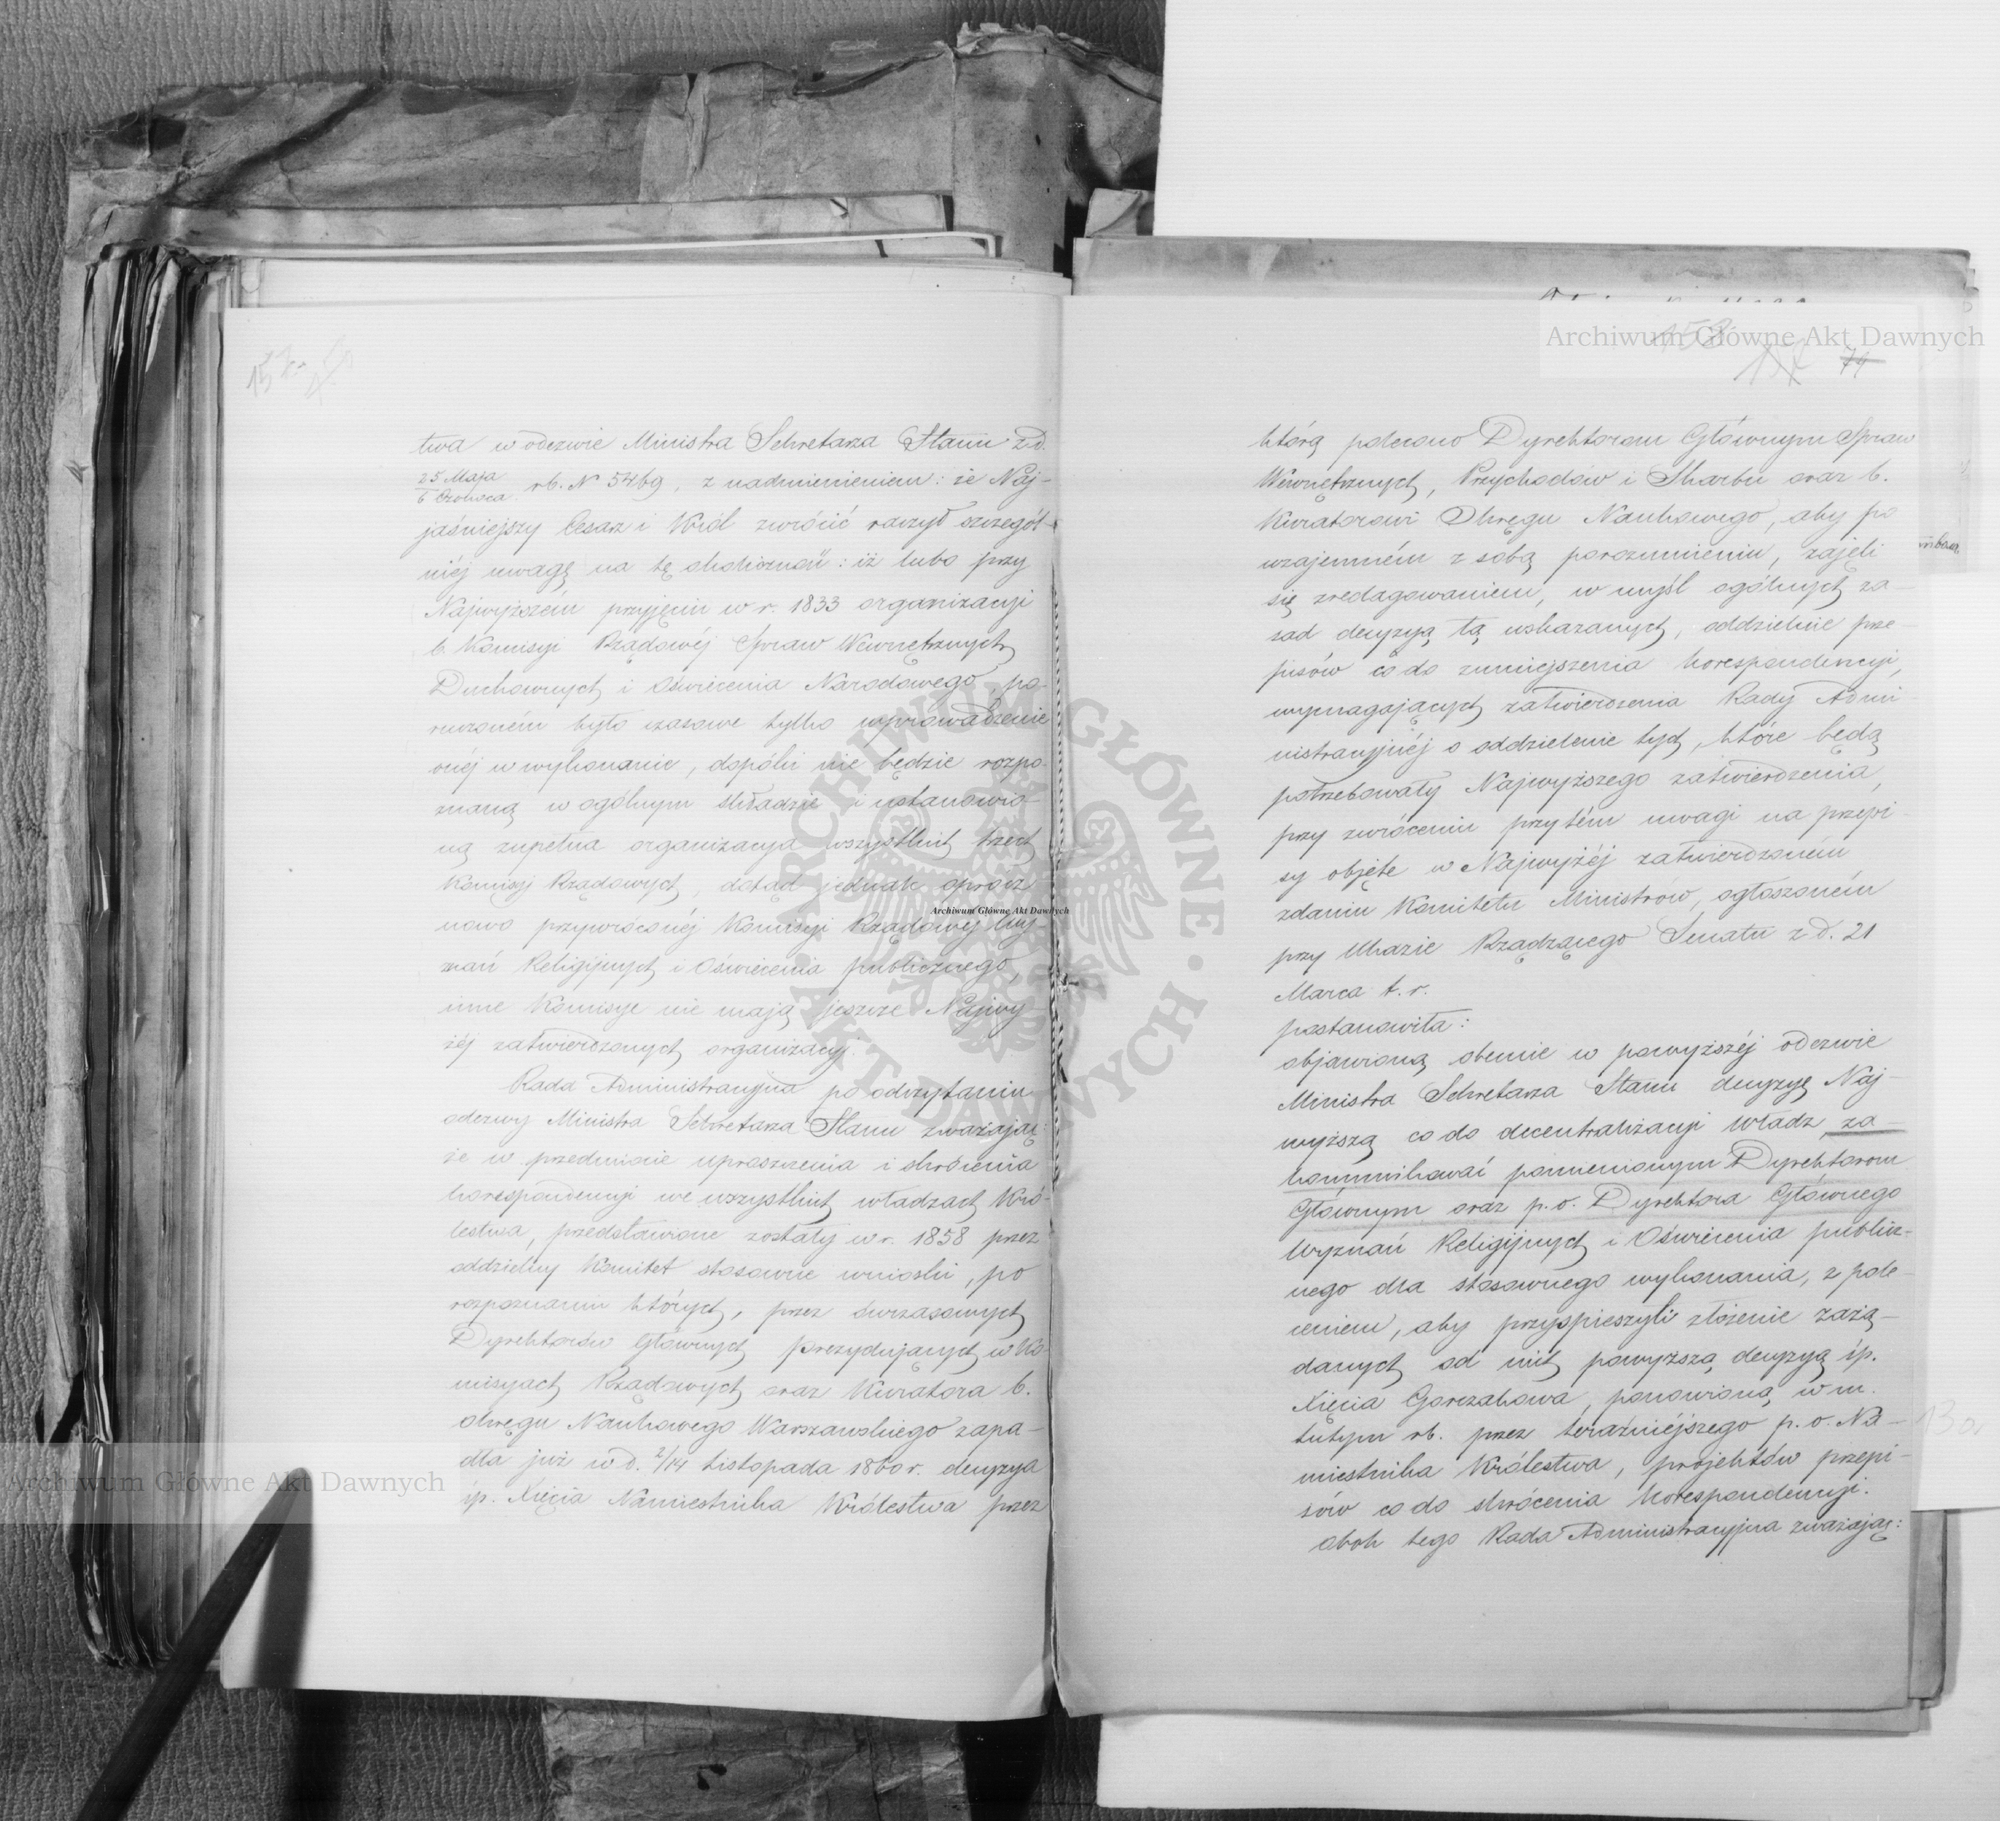 twa w odezwie Ministra Sekretarza Stanu z d.
25 Maja
6 Czerwca rb. N 5469, z nadmienieniem: że Naj-
jaśniejszy Cesarz i Król zwrócić raczył szczegól-
niéj uwagę na tę okoliczność: iż lubo przy
Najwyższém przyjęciu w r. 1833 organizacyi
b. Komisyi Rządowéj Spraw Wewnętrznych
Duchownych i Oświecenia Narodowego, po-
ruczoném było czasowe tylko wprowadzenie
onéj w wykonanie, dopóki nie będzie rozpo-
znaną w ogólnym składzie i ustanowio-
ną zupełna organizacya wszystkich trzech
Komisyj Rządowych, dotąd jednak oprócz
nowo przywróconéj Komisyi Rządowéj Wy-
znań Religijnych i Oświecenia publicznego,
inne Komisye nie mają jeszcze Najwy-
żéj zatwierdzonych organizacyj.
Rada Administracyjna po odczytaniu
odezwy Ministra Sekretarza Stanu zważając:
że w przedmiocie uproszczenia i skrócenia
korespondencyi we wszystkich władzach Kró-
lestwa, przedstawione zostały w r. 1858 przez
oddzielny Komitet stosowne wnioski, po
rozpoznaniu których, przez ówczasowych
Dyrektorów Głównych Prezydujących w Ko-
misyach Rządowych oraz Kuratora b.
Okręgu Naukowego Warszawskiego zapa-
dła już w d. 2/14 Listopada 1860 r. decyzya
śp. Xięcia Namiestnika Królestwa przez
158
74
którą polecono Dyrektorom Głównym Spraw
Wewnętrznych, Przychodów i Skarbu oraz b.
Kuratorowi Okręgu Naukowego, aby po
wzajemném z sobą porozumieniu, zajęli
się zredagowaniem, w myśl ogólnych za-
sad decyzyą tą wskazanych, oddzielnie prze-
pisów co do zmniejszenia korespondencyi,
wymagających zatwierdzenia Rady Admi
nistracyjnéj a oddzielenie tych, które będą
potrzebowały Najwyższego zatwierdzenia,
przy zwróceniu przytém uwagi na przepi-
sy objęte w Najwyżéj zatwierdzoném
zdaniu Komitetu Ministrów, ogłoszoném
przy Ukazie Rządzącego Senatu z d. 21
Marca t. r.
postanowiła:
objawioną obecnie w powyższéj odezwie
Ministra Sekretarza Stanu decyzyę Naj-
wyższą co do decentralizacyi Władz, za-
kommunikować pomienionym Dyrektorom
Głównym oraz p. o. Dyrektora Głównego
Wyznań Religijnych i Oświecenia publicz-
nego dla stosownego wykonania, z pole-
ceniem, aby przyspieszyli złożenie zażą-
danych od nich powyższą decyzyą śp.
Xięcia Gorczakowa, ponowioną w m.
Lutym rb. przez teraźniejszego p. o. Na-
miestnika Królestwa, projektów przepi-
sów co do skrócenia korespondencyi.
obok tego Rada Administracyjna zważając:
Archiwum Główne Akt Dawnych
Archiwum Główne Akt Dawnych
Archiwum Główne Akt Dawnych
ARCHIWUM GŁÓWNE · AKT DAWNYCH ·